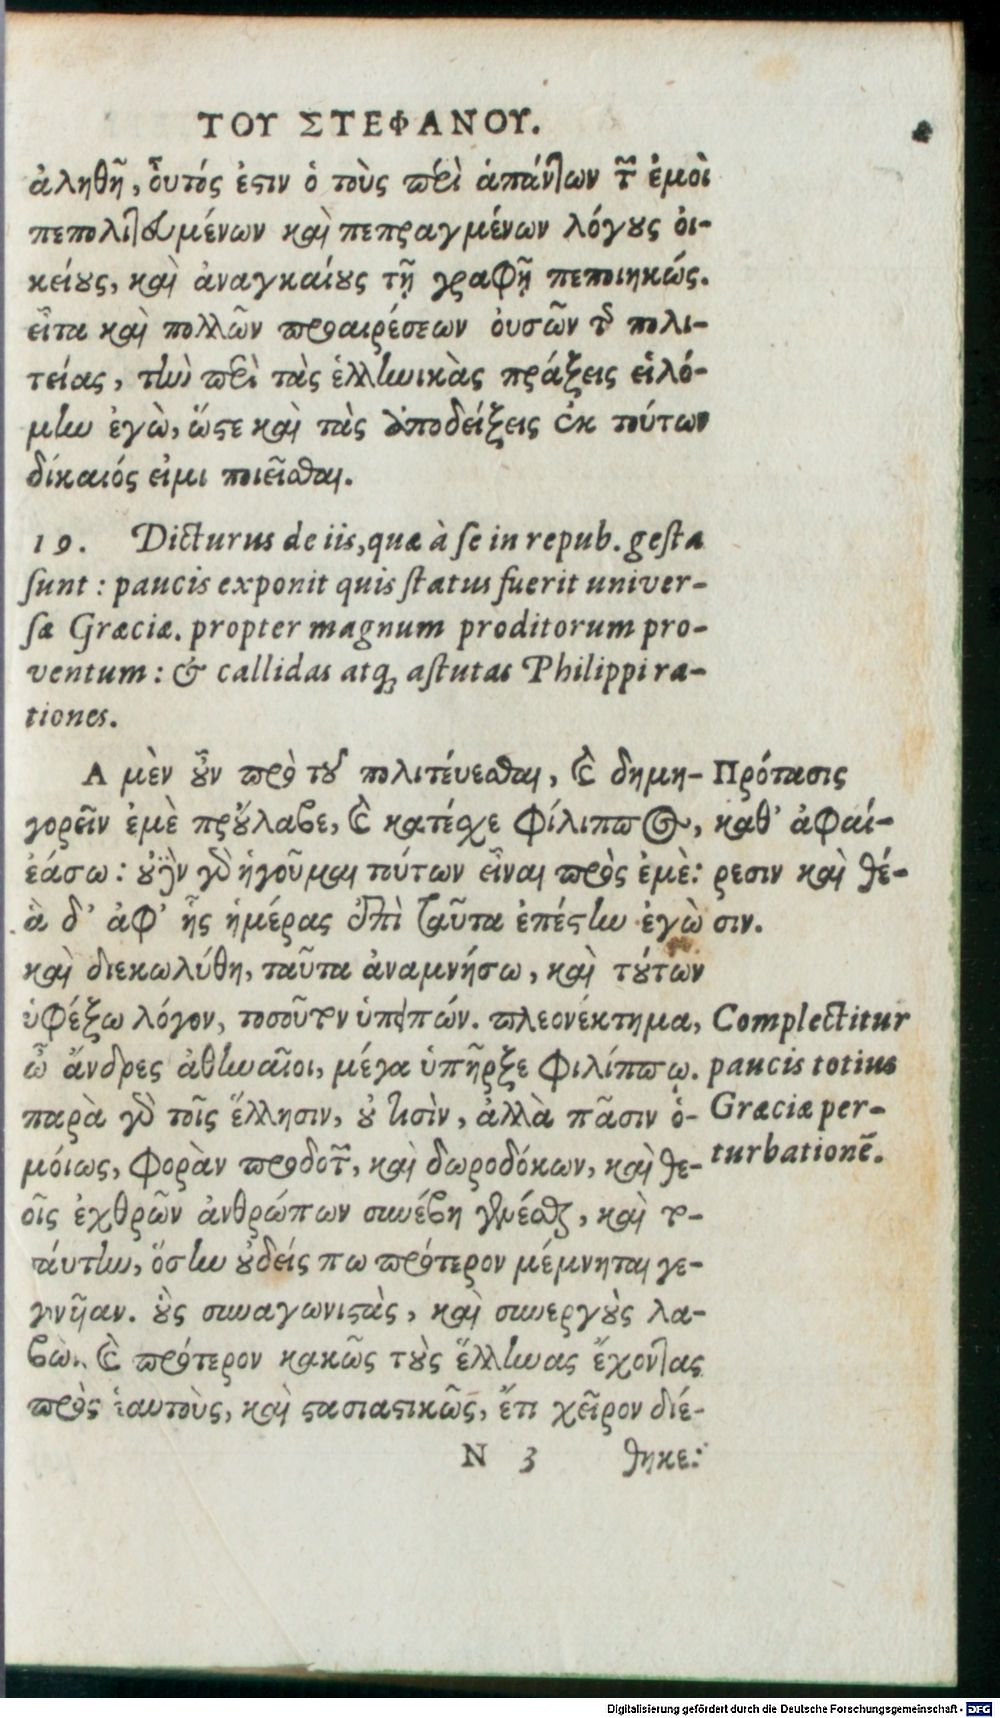 ΤΟΥ ΣΤΕΦΑΝΟΥ.
ἀληθῆ, οὗτός ἐστιν ὁ τοὺς περὶ ἁπάντων τῶν ἐμοὶ
πεπολιτευμένων καὶ πεπραγμένων λόγους οἰ-
κείους, καὶ ἀναγκαίους τῇ γραφῇ πεποιηκώς.
εἶτα καὶ πολλῶν προαιρέσεων οὐσῶν τῆς πολι-
τείας, τὴν περὶ τὰς ἑλληνικὰς πράξεις εἱλό-
μην ἐγὼ, ὥστε καὶ τὰς ἀποδείξεις ἐκ τούτων
δίκαιός εἰμι ποιεῖσθαι.
19. Dicturus de iis, quæ à se in repub. gesta
sunt: paucis exponit quis status fuerit univer-
sæ Græciæ. propter magnum proditorum pro-
ventum: & callidas atq; astutas Philippi ra-
tiones.
Α μὲν οὖν πρὸ τοῦ πολιτεύεσθαι, καὶ δημη-
γορεῖν ἐμὲ προὔλαβε, καὶ κατέσχε Φίλιππος,
ἐάσω: οὐδὲν γὰρ ἡγοῦμαι τούτων εἶναι πρὸς ἐμὲ:
ἃ δ' ἀφ' ἧς ἡμέρας ἐπὶ ταῦτα ἐπέστην ἐγὼ
καὶ διεκωλύθη, ταῦτα ἀναμνήσω, καὶ τούτων
ὑφέξω λόγον, τοσοῦτον ὑπειπών. πλεονέκτημα,
ὦ ἄνδρες ἀθηναῖοι, μέγα ὑπῆρξε Φιλίππῳ.
παρὰ γὰρ τοῖς ἕλλησιν, οὐ τισὶν, ἀλλὰ πᾶσιν ὁ-
μόιως, φορὰν προδοτῶν, καὶ δωροδόκων, καὶ θε-
οῖς ἐχθρῶν ἀνθρώπων συνέβη γενέσθαι, καὶ το-
ιαύτην, ὅσην οὐδείς πω πρότερον μέμνηται γε-
γονῆαν. οὓς συναγωνιστὰς, καὶ συνεργοὺς λα-
βὼν καὶ πρότερον κακῶς τοὺς ἕλληνας ἔχοντας
πρὸς ἑαυτοὺς, καὶ στασιαστικῶς, ἔτι χεῖρον διέ-
N 3 θηκε:
Πρότασις
καθ' ἀφαί-
ρεσιν καὶ θέ-
σιν.
Complectitur
paucis totius
Græciæ per-
turbationē.
Digitalisierung gefördert durch die Deutsche Forschungsgemeinschaft - DFG